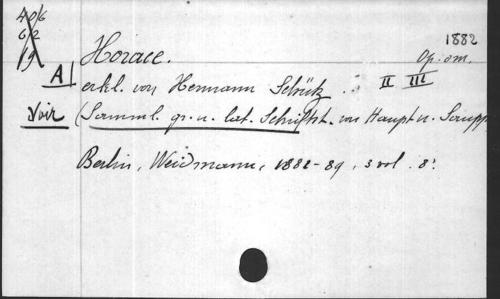 406
6/2
19
1882
Horace.
Op. om.
A
erkl. von Hermann Schütz. II III
Voir
(Samml. gr. u. lat. Schriftst. von Haupt u. Saupp
Berlin, Weidmann, 1882-89, 3 vol. 8°.